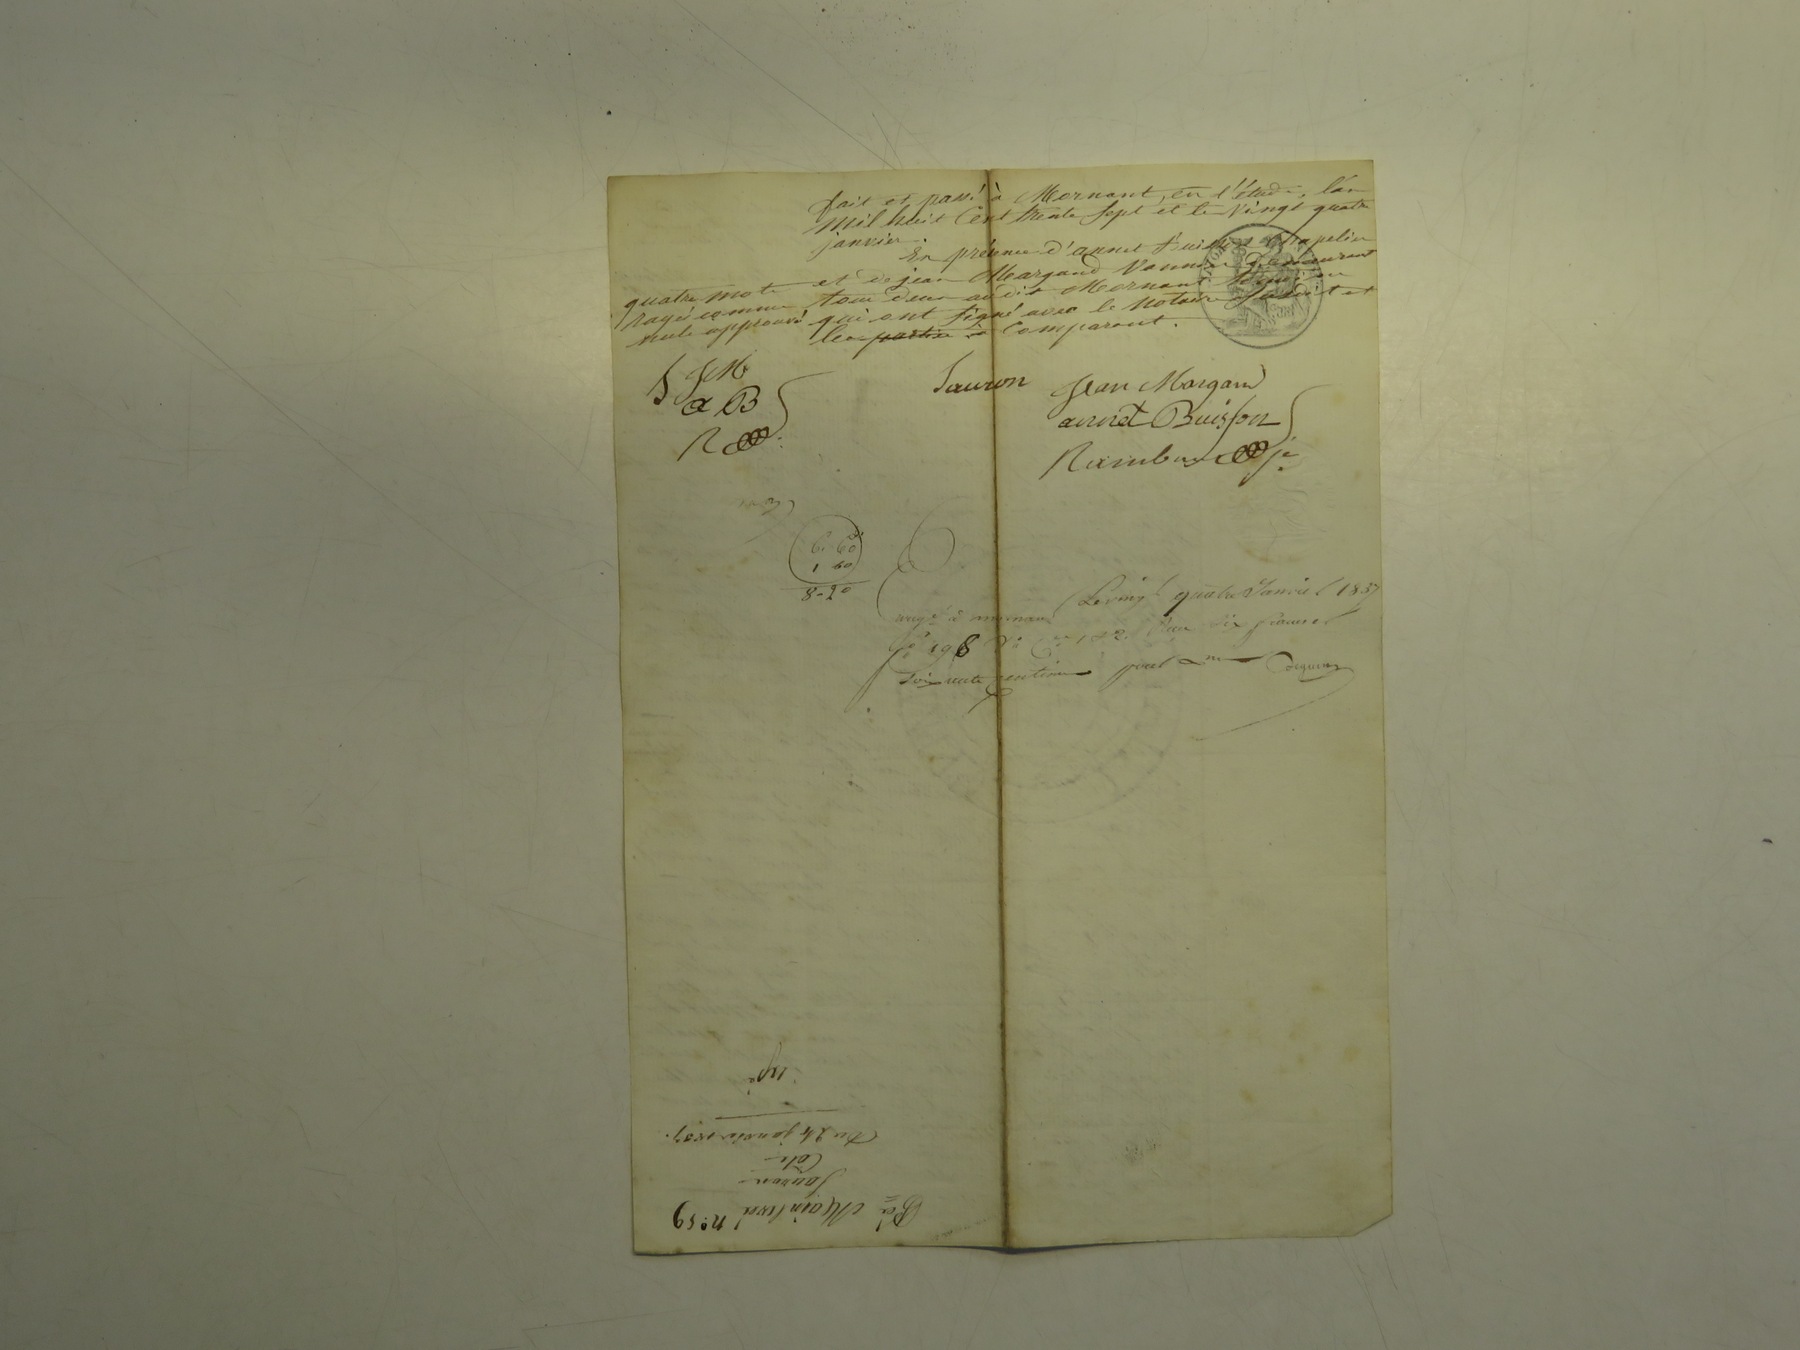 fait et passé à Mornant, en l'étude, l'an
mil huit cent trente sept et le vingt quatre
janvier.
En présence d'annet Buisson chapelier
et de jean Margand vannier demeurant
tous deux audit Mornant
qui ont signé avec le Notaire susdit et
les partie et Comparant.
quatre mots
rayés comme
nuls approuvé
S JM
a B
R
Sauron
Jean Margand
annet Buisson
6. 60
1 60
8-20
Le vingt quatre Janvier 1837
enregé à mornant
fo 198 Vo Co 1 et 2. Reçu six francs et
soixante centimes
No 59
Sauron
Cote
Du 24 janvier 1837.